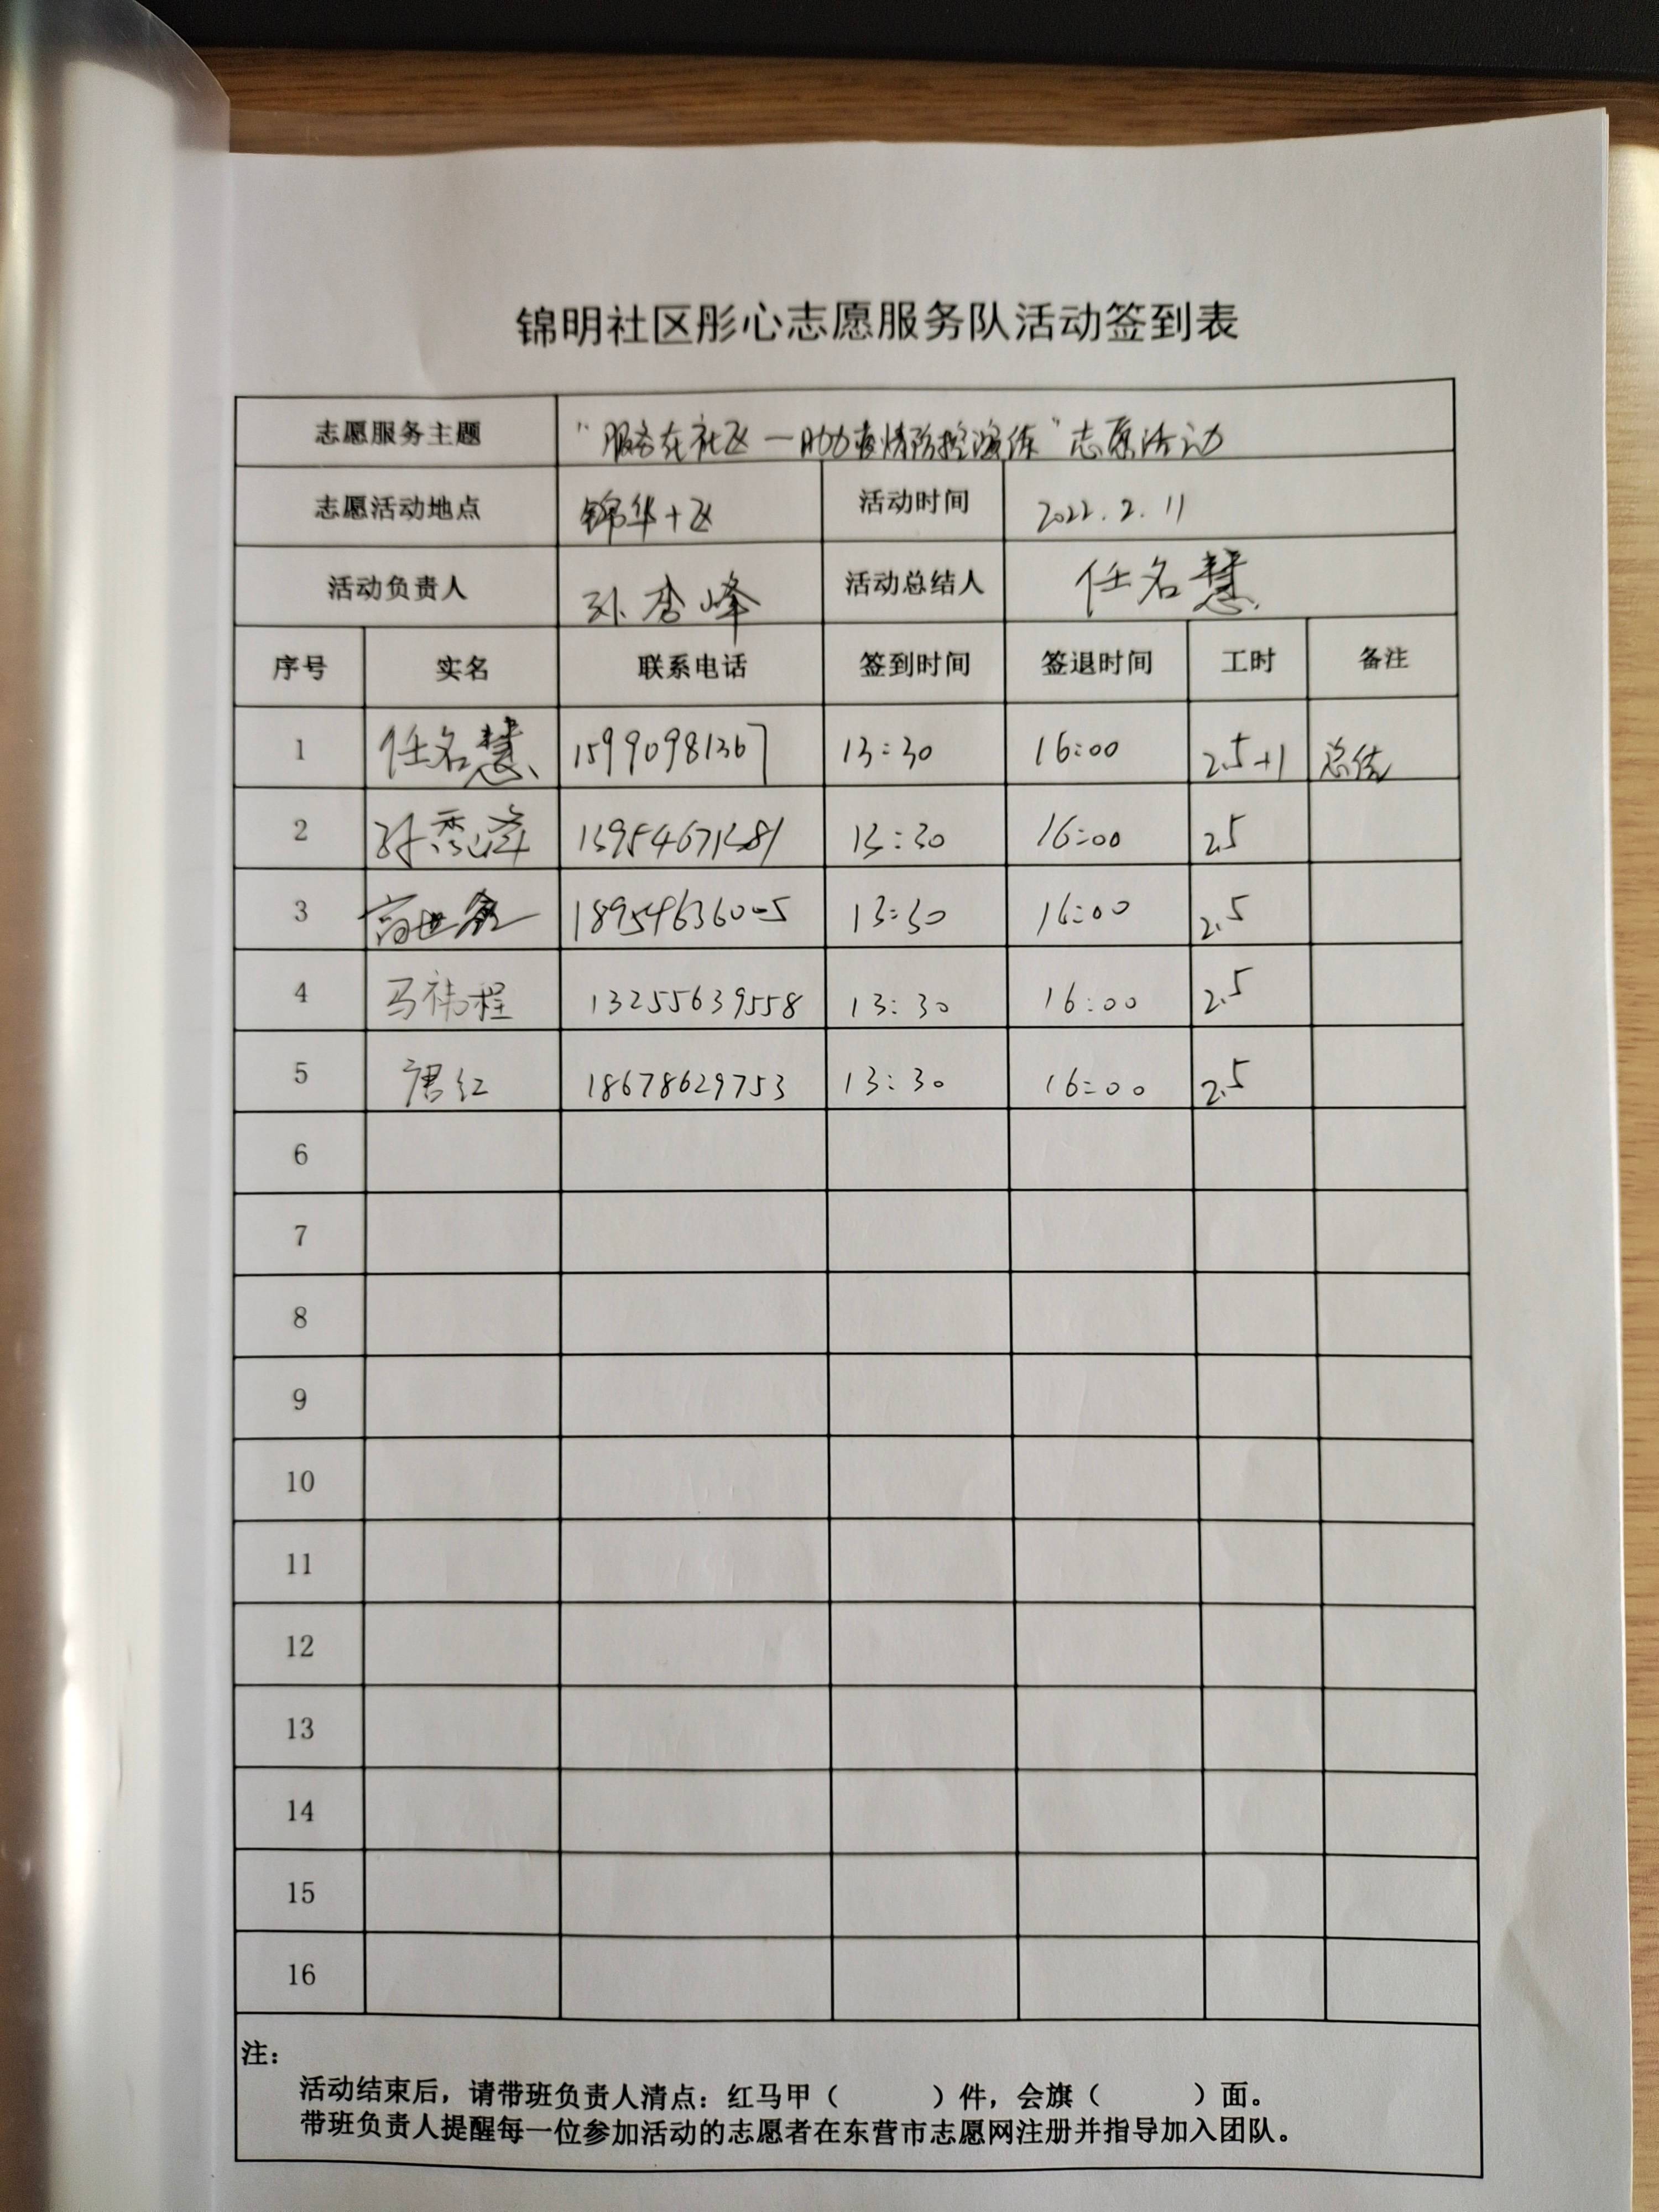 锦明社区彤心志愿服务队活动签到表
志愿服务主题 “服务在社区—助力疫情防控演练”志愿活动
志愿活动地点 锦华十区 活动时间 2022.2.11
活动负责人 孙秀峰 活动总结人 任名慧
序号 实名 联系电话 签到时间 签退时间 工时 备注
1 任名慧 15990981367 13:30 16:00 2.5+1 总结
2 孙秀萍 13:30 16:00 2.5
3 高世鑫 13:30 16:00 2.5
4 马祎程 13255639558 13:30 16:00 2.5
5 唐红 18678629753 13:30 16:00 2.5
6
7
8
9
10
11
12
13
14
15
16
注：
活动结束后，请带班负责人清点：红马甲（ ）件，会旗（ ）面。
带班负责人提醒每一位参加活动的志愿者在东营市志愿网注册并指导加入团队。